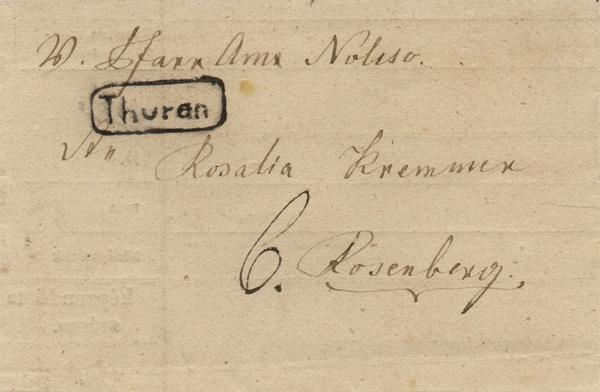 V. Pfarr Amr Nolcso.
Thuran
An
Rosalia Kremmer
6. Rosenberg.